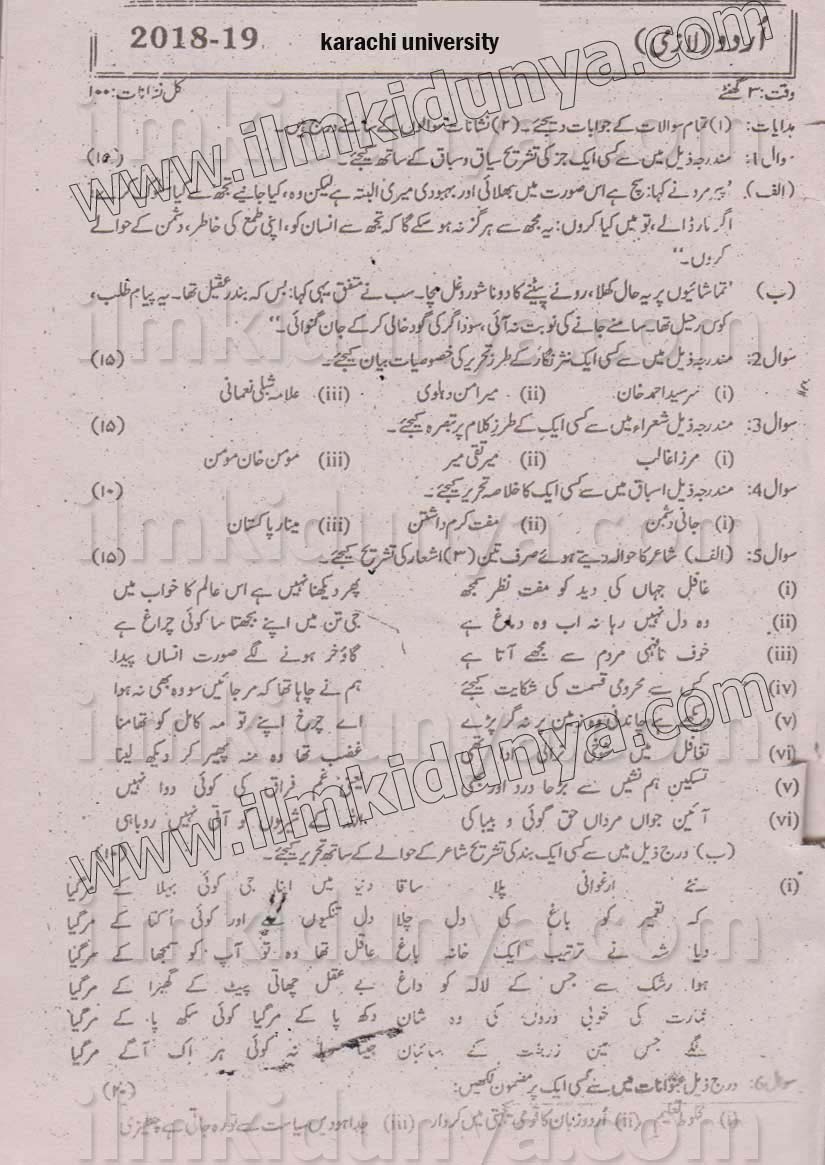 2018-19 karachi university اُردو (لازمی)
وقت: ۳ گھنٹے کل نشانات: ۱۰۰
ہدایات: (۱) تمام سوالات کے جوابات دیجئے۔ (۲) نشانات سوالوں کے سامنے درج ہیں۔
سوال 1: مندرجہ ذیل میں سے کسی ایک جز کی تشریح سیاق و سباق کے ساتھ کیجئے۔ (۱۵)
(الف) "پیر مرد نے کہا: سچ ہے اس صورت میں بھلائی اور بہبودی میری البتہ ہے لیکن وہ، کیا جانیے تجھ سے کیا
اگر مار ڈالے، تو میں کیا کروں: یہ مجھ سے ہرگز نہ ہو سکے گا کہ تجھ سے انسان کو، اپنی طمع کی خاطر، دشمن کے حوالے
کروں۔"
(ب) "تماشائیوں پر یہ حال کھلا، رونے پیٹنے کا دونا شور و غل مچا۔ سب نے متفق یہی کہا: بس کہ بندر عقیل تھا۔ یہ پیام طلب،
کوس رحیل تھا۔ سامنے جانے کی نوبت نہ آئی، سوداگر کی گود خالی کر کے جان گنوائی۔"
سوال 2: مندرجہ ذیل میں سے کسی ایک نثر نگار کے طرز تحریر کی خصوصیات بیان کیجئے۔ (۱۵)
(i) سر سید احمد خان (ii) میر امن دہلوی (iii) علامہ شبلی نعمانی
سوال 3: مندرجہ ذیل شعراء میں سے کسی ایک کے طرز کلام پر تبصرہ کیجئے۔ (۱۵)
(i) مرزا غالب (ii) میر تقی میر (iii) مومن خان مومن
سوال 4: مندرجہ ذیل اسباق میں سے کسی ایک کا خلاصہ تحریر کیجئے۔ (۱۰)
(i) جانی دشمن (ii) مفت کرم داشتن (iii) مینار پاکستان
سوال 5: (الف) شاعر کا حوالہ دیتے ہوئے صرف تین (۳) اشعار کی تشریح کیجئے۔ (۱۵)
(i) غافل جہاں کی دید کو مفت نظر سمجھ پھر دیکھنا نہیں ہے اس عالم کا خواب میں
(ii) وہ دل نہیں رہا نہ اب وہ دماغ ہے جی تن میں اپنے بجھتا سا کوئی چراغ ہے
(iii) خوف نافہمی مردم سے مجھے آتا ہے گاؤ خر ہونے لگے صورت انساں پیدا
(iv) کس سے محرومی قسمت کی شکایت کیجئے ہم نے چاہا تھا کہ مر جائیں سو وہ بھی نہ ہوا
(v) چاندنی زمین پر نہ گر پڑے اے چرخ اپنے تو مہ کامل کو تھامنا
(vi) تغافل میں ادا تھی غضب تھا وہ منہ پھیر کر دیکھ لینا
(v) تسکین ہم نشیں سے بڑھا درد اور بھی یعنی غم فراق کی کوئی دوا نہیں
(vi) آئین جواں مرداں حق گوئی و بیباکی اللہ کے شیروں کو آتی نہیں روباہی
(ب) درج ذیل میں سے کسی ایک بند کی تشریح شاعر کے حوالے کے ساتھ تحریر کیجئے۔
(i) مئے ارغوانی پلا ساقیا دنیا میں اپنا جی کوئی بہلا کے مر گیا
کہ تعمیر کو باغ کی دل چلا دل تنگیوں سے اور کوئی اکتا کے مر گیا
دیا شہ نے ترتیب ایک خانہ باغ عاقل تھا وہ تو آپ کو سمجھا کے مر گیا
ہوا رشک سے جس کے لالہ کو داغ بے عقل چھاتی پیٹ کے گھبرا کے مر گیا
عمارت کی خوبی دروں کی وہ شان دکھ پا کے مر گیا کوئی سکھ پا کے مر گیا
لگے جس میں زربفت کے سائبان جیتا رہا نہ کوئی ہر اک آ کے مر گیا
سوال 6: درج ذیل عنوانات میں سے کسی ایک پر مضمون لکھیں: (۲۰)
(i) مخلوط تعلیم (ii) اُردو زبان کا قومی یکجہتی میں کردار (iii) جدا ہو دیں سیاست سے تو رہ جاتی ہے چنگیزی
www.ilmkidunya.com
www.ilmkidunya.com
ilmkidunya.com